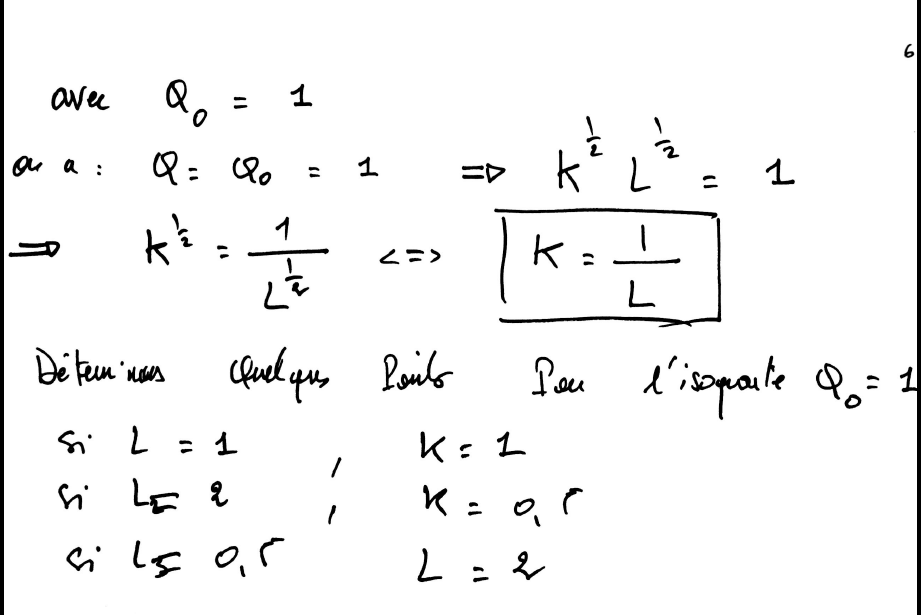 6
avec Q₀ = 1
on a : Q = Q₀ = 1 => K^{1/2} L^{1/2} = 1
=> K^{1/2} = 1 / L^{1/2} <=> K = 1 / L
Déterminons Quelques Points Pour l'isoquante Q₀ = 1
si L = 1 , K = 1
si L = 2 , K = 0,5
si L = 0,5 L = 2